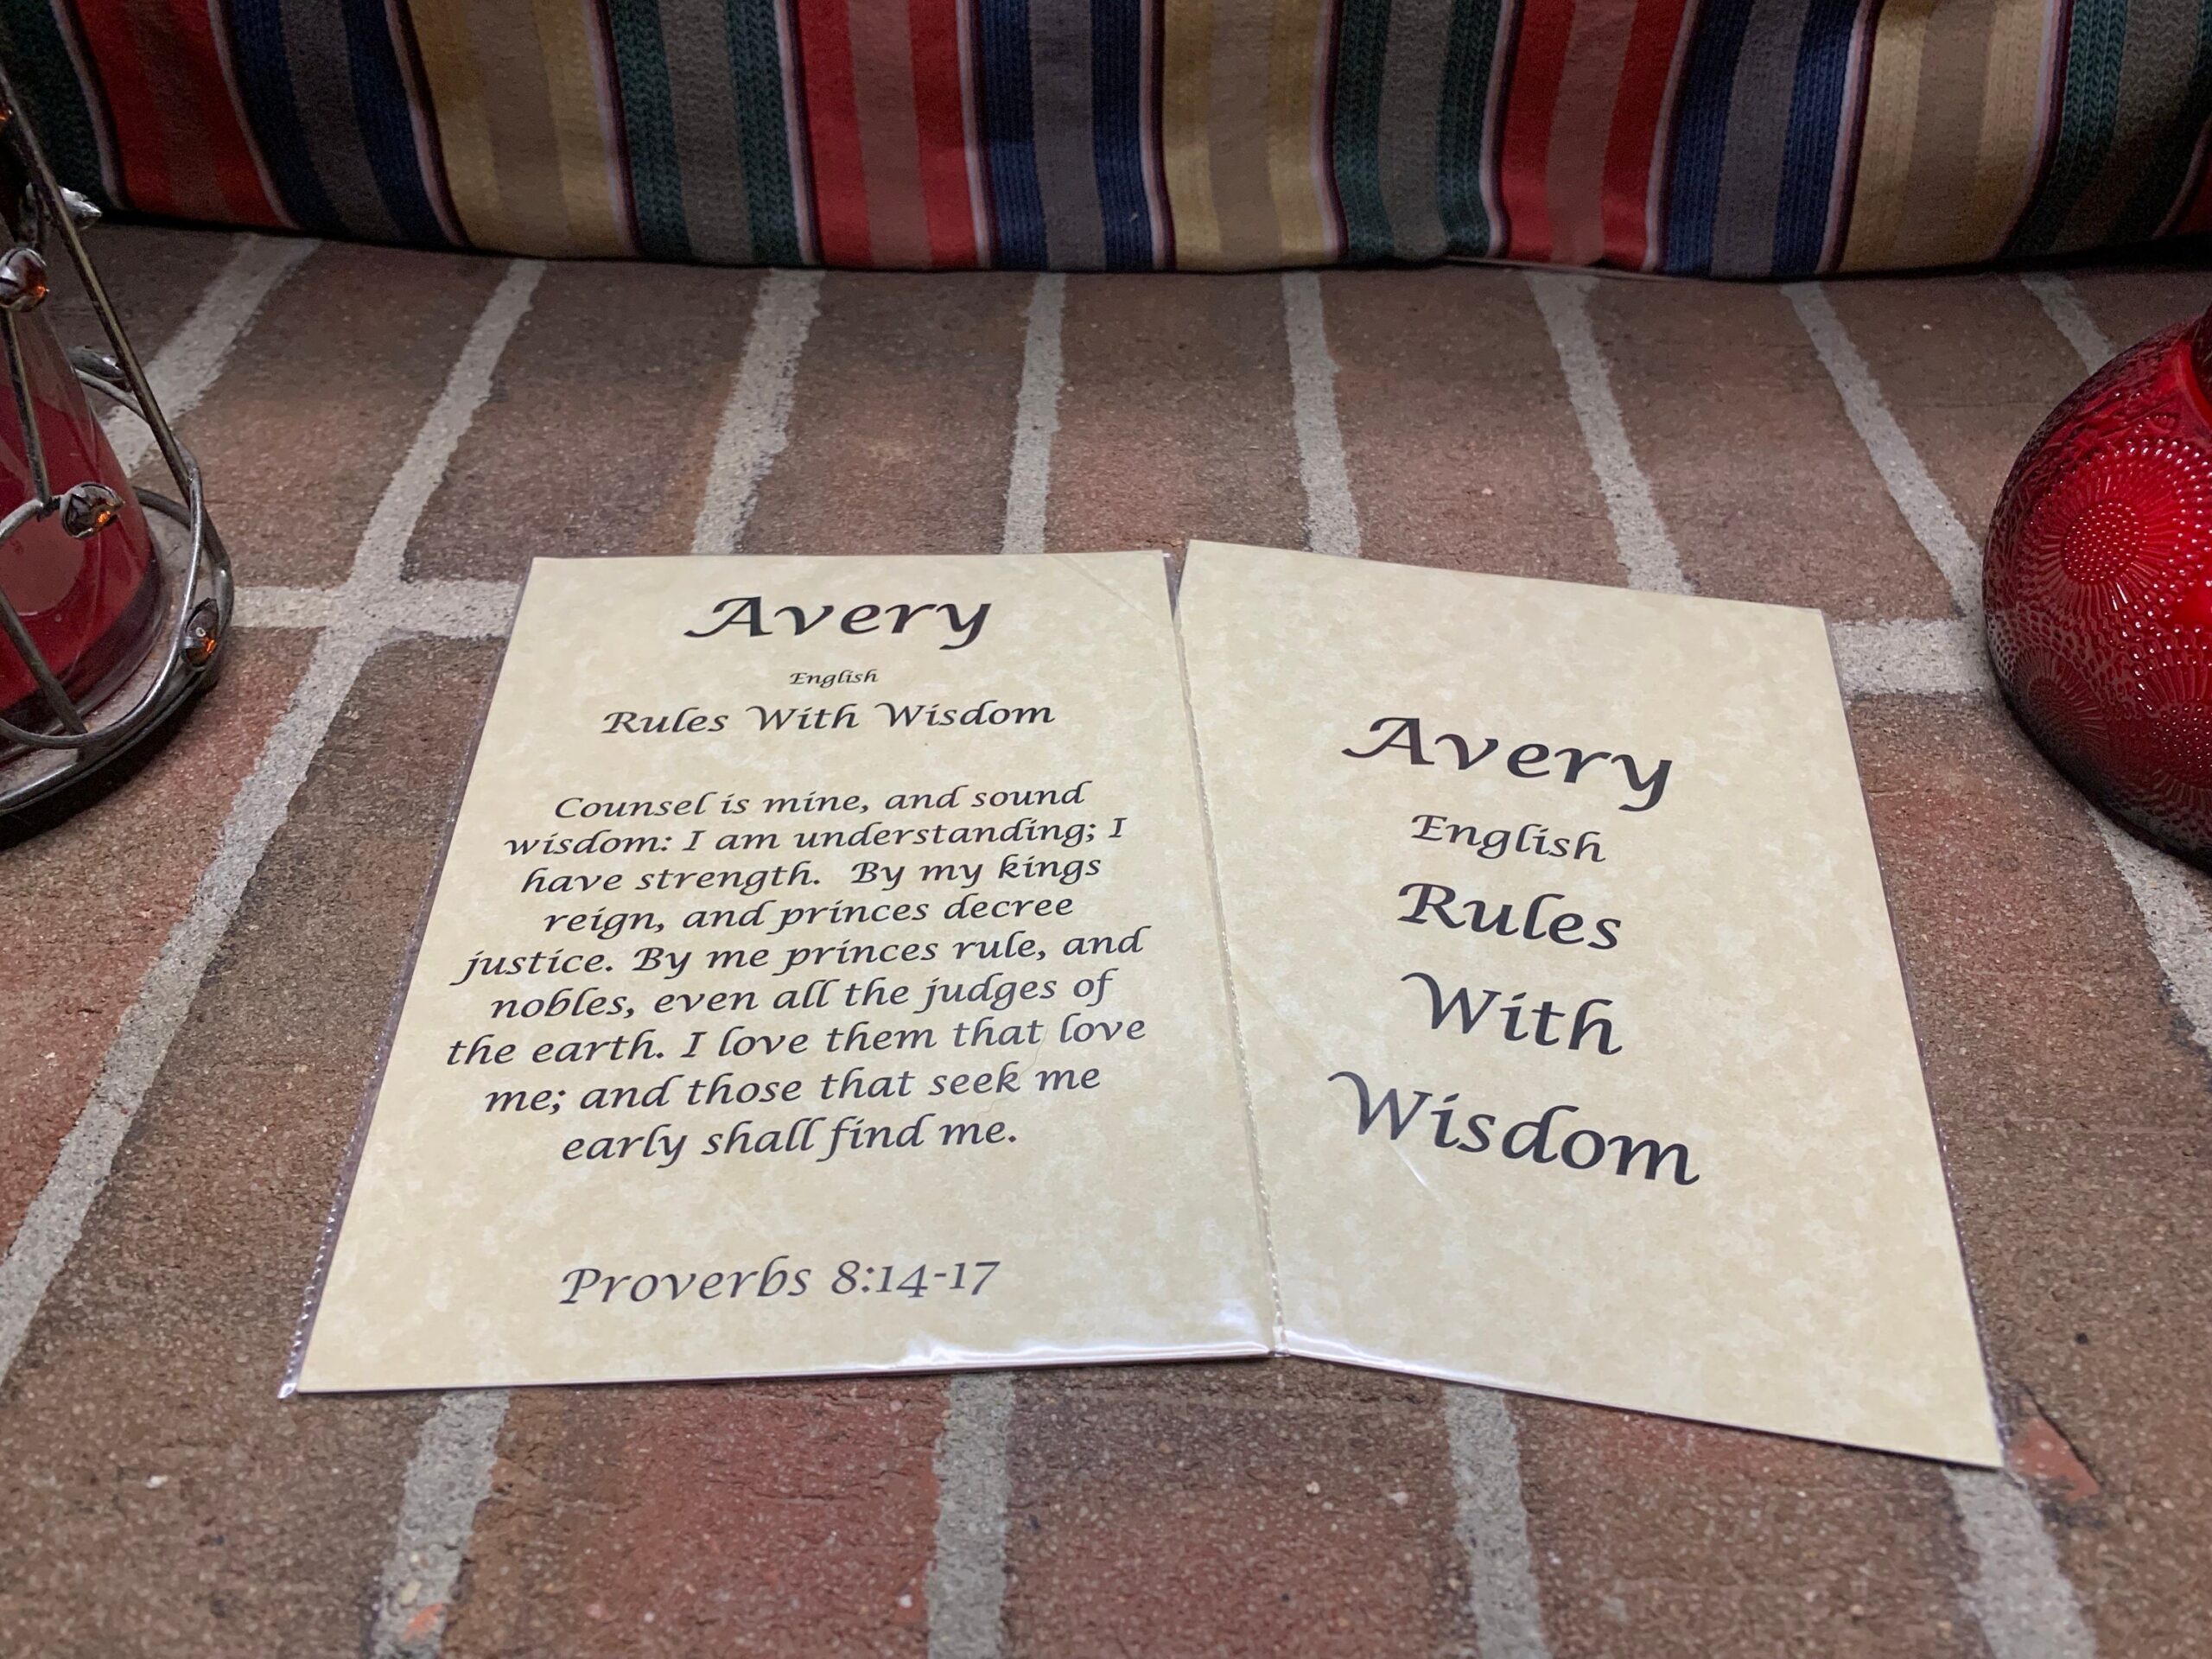 Avery
English
Rules With Wisdom
Counsel is mine, and sound
wisdom: I am understanding; I
have strength. By my kings
reign, and princes decree
justice. By me princes rule, and
nobles, even all the judges of
the earth. I love them that love
me; and those that seek me
early shall find me.
Proverbs 8:14-17
Avery
English
Rules
With
Wisdom